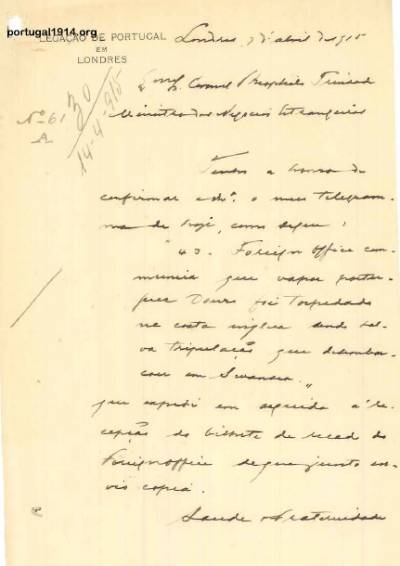 portugal1914.org
LEGAÇÃO DE PORTUGAL
EM
LONDRES
Londres, 7 d'abril de 1915
Nº 61
A
30
14-4-915
Coronel Trindade
Ministro dos Negocios Estrangeiros
Tenho a honra de
confirmar a o meu telegram-
ma de hoje, como segue:
"43. Foreign Office com-
munica que vapor portu-
guez Douro foi torpedado
na costa ingleza sendo sal-
va tripulação que desembar-
cou em Swansea."
que expedi em seguida á re-
cepção do bilhete do
Foreign Office de que junto en-
vio copia.
Saude e Fraternidade